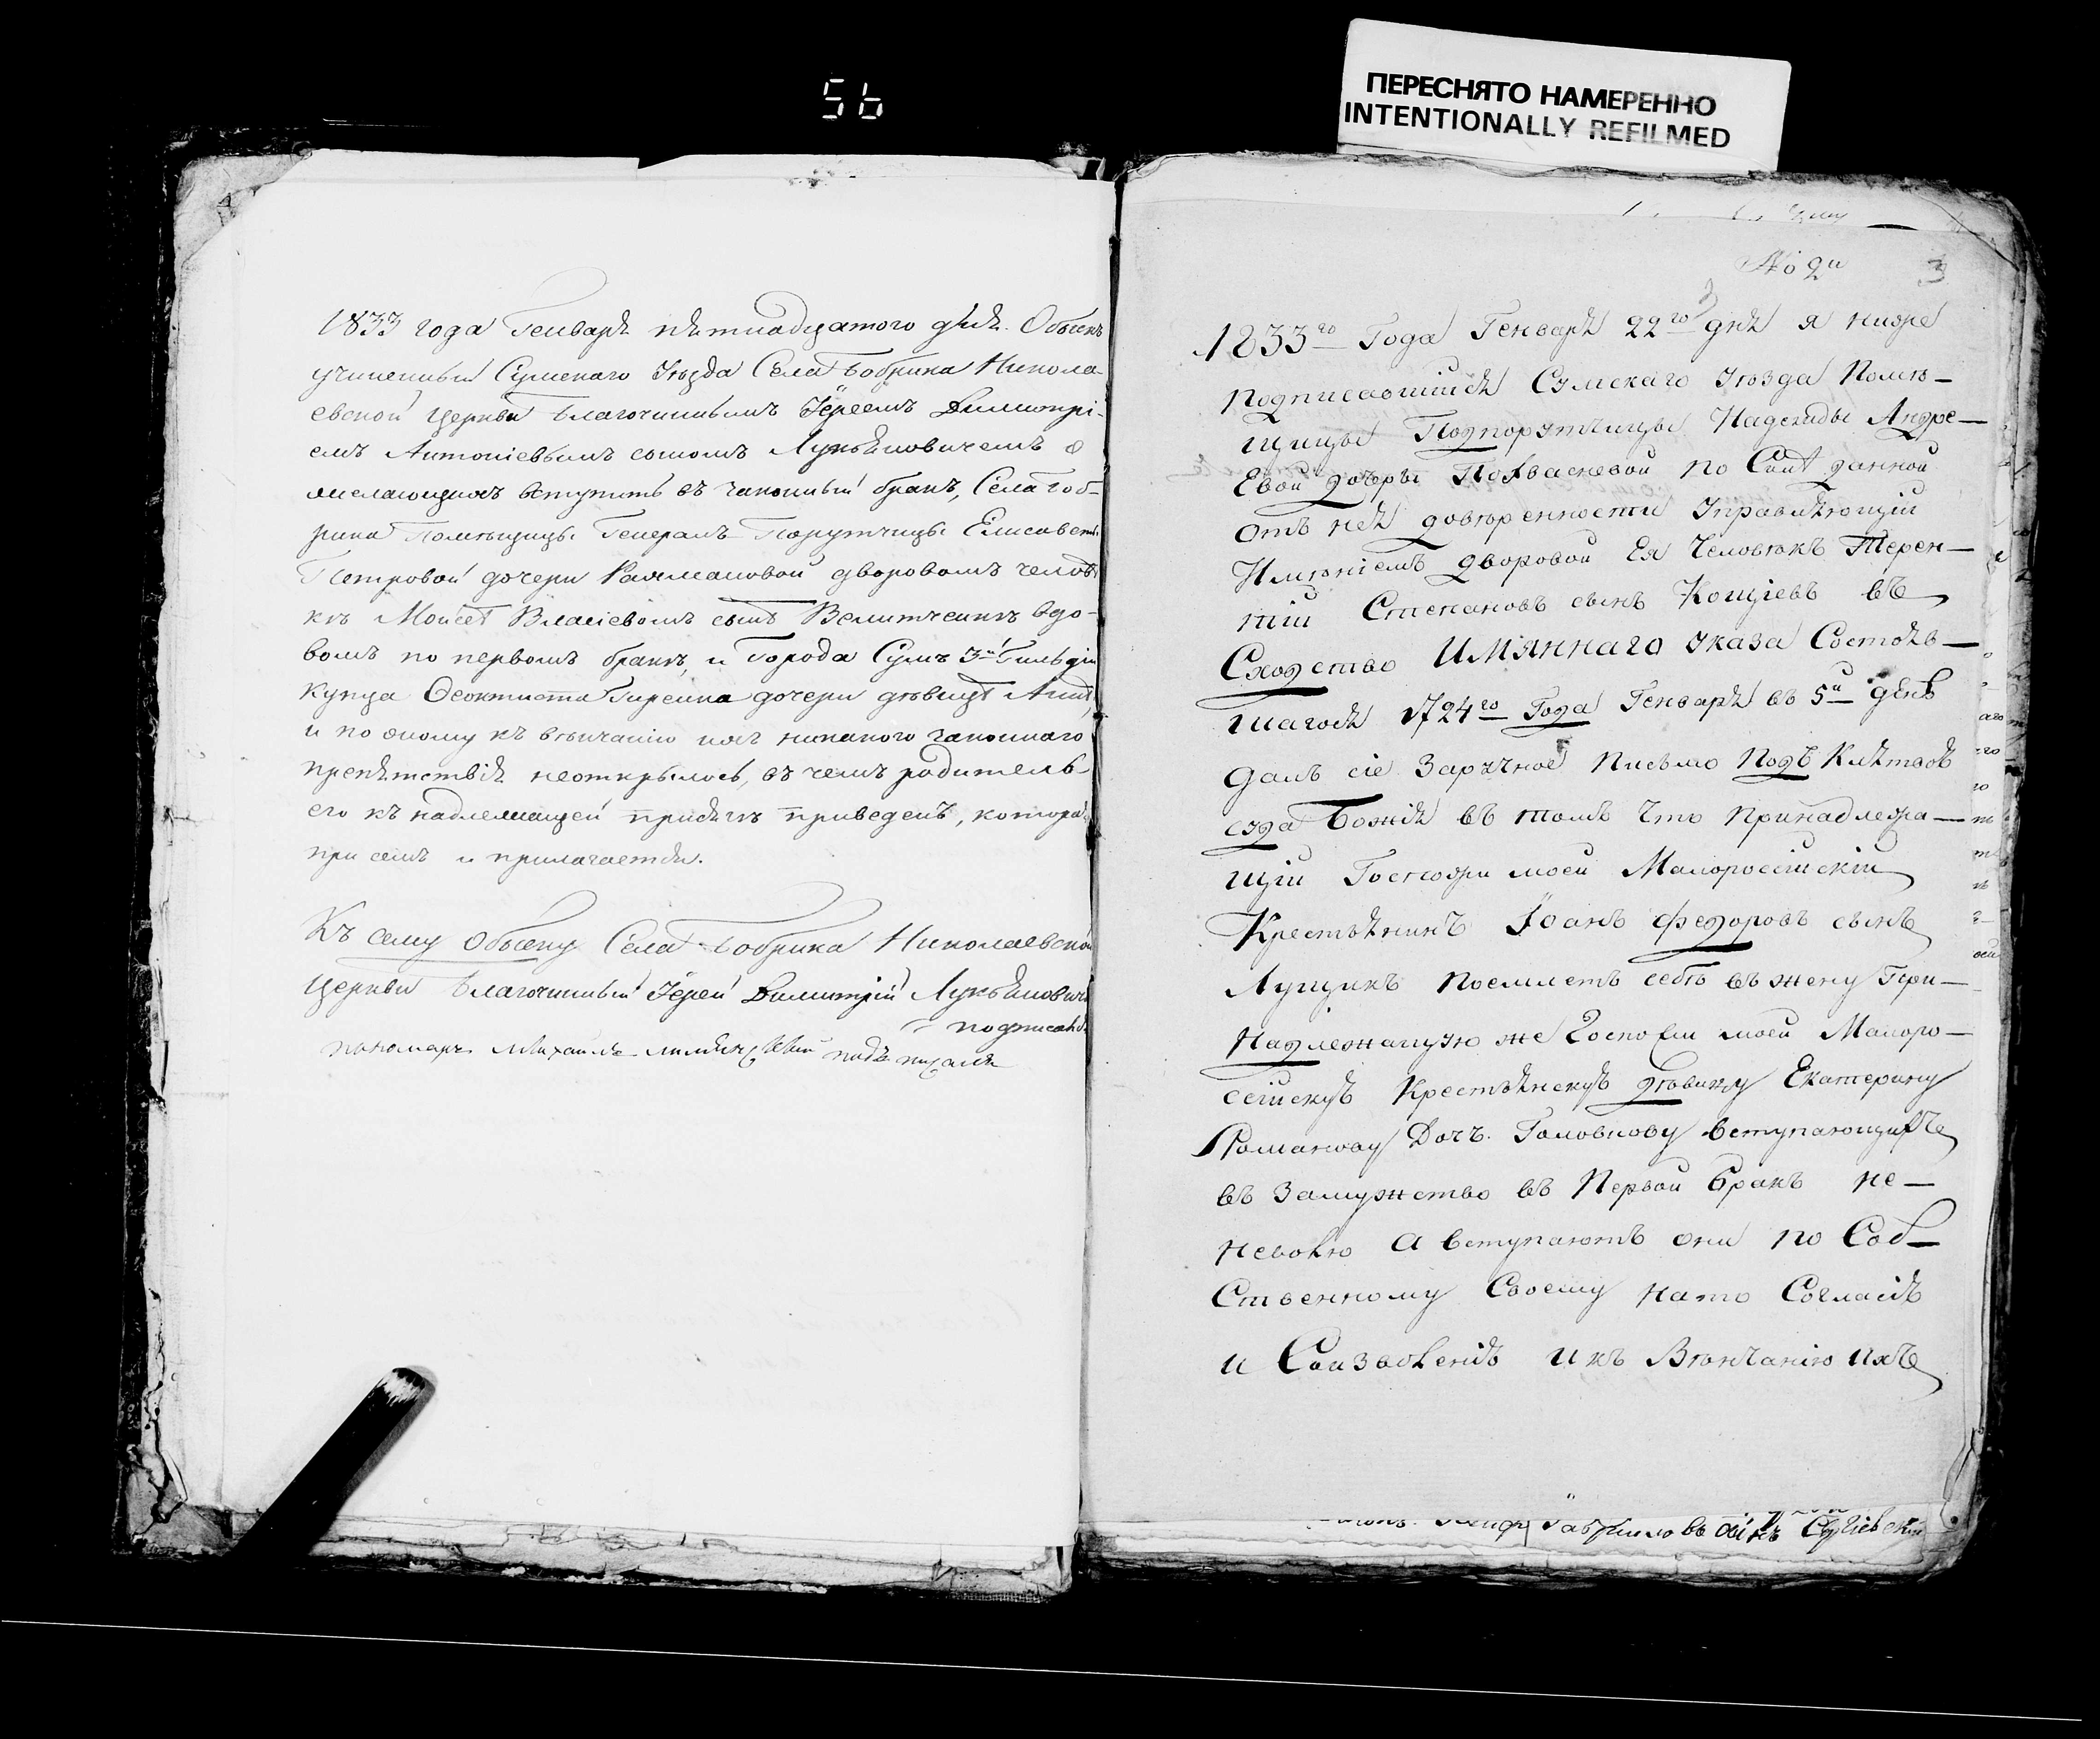 56
ПЕРЕСНЯТО НАМЕРЕННО
INTENTIONALLY REFILMED
1833 года Генваря пятнадцатого дня. Обыскъ
учиненный Сумскаго Уѣзда Села Бобрика Никола-
евской Церкви Благочиннымъ Іереемъ Димитрі-
емъ Антоніевымъ сыномъ Лукьяновичемъ о
желающихъ вступить въ законный бракъ, Села Боб-
рика Помѣщицы Генералъ Порутчицы Елисаветы
Петровой дочери Рахмановой дворовомъ человѣ
кѣ Моисеѣ Власіевомъ сынѣ Велитченкѣ вдо-
вомъ по первомъ бракѣ, и Города Сумъ 3й Гильдіи
Купца Ѳеоктиста дочери дѣвицѣ Аннѣ,
и по оному къ вѣнчанію ихъ никакого законнаго
препятствія неоткрылось, въ чемъ родитель
его къ надлежащей присягѣ приведенъ, которая
при семъ и прилагается.
Къ сему Обыску Села Бобрика Николаевской
Церкви Благочинный Іерей Димитрій Лукьяновичъ
подписался
пономарь Михаилъ подъписался
№ 2й
3
1833го Года Генваря 22го дня я ниже
подписавшійся Сумскаго уѣзда Помѣ-
щицы Подпорутчицы Надежды Андре-
Евой дочеры по Силѣ данной
отъ нея довѣренности Управляющій
Имѣніемъ дворовой Ея Человѣкъ Терен-
тій Степановъ сынъ Кощіевъ въ
Сходство Имяннаго указа Состояв-
шагося 1724го Года Генваря въ 5й день
далъ сіе Заручное Письмо Подъ Клятвою
суда Божія въ томъ Что Принадлежа-
щій Госпожи моей Малоросійскій
Крестьянинъ Іоанъ федоровъ сынъ
Лущикъ поемлетъ себѣ въ жену При-
Надлежащую же Госпожи моей Малоро-
сійскую Крестьянскую дѣвицу Екатерину
Романову Дочь Головкову вступающихъ
въ Замужство въ Первой бракъ не-
неволю а вступаютъ они по Соб-
Ственному Своему на то Согласію
и Соизволенію И къ Вѣнчанію ихъ